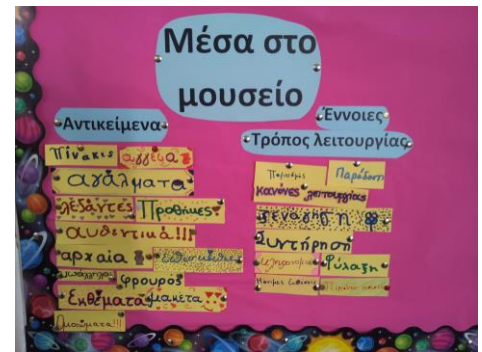 Μέσα στο
μουσείο
Αντικείμενα
Πίνακις αγγεία
αγάλματα
λεζάντες Προθήκες
αυθεντικά!!!
αρχαία
φρουρός
Εκθέματα μακέτα
Ομοιώματα!!!
Έννοιες
Τρόπος λειτουργίας
Παράδοση
κανόνες λειτουργίας
ξενάγηση
Συντήρηση
Φύλαξη